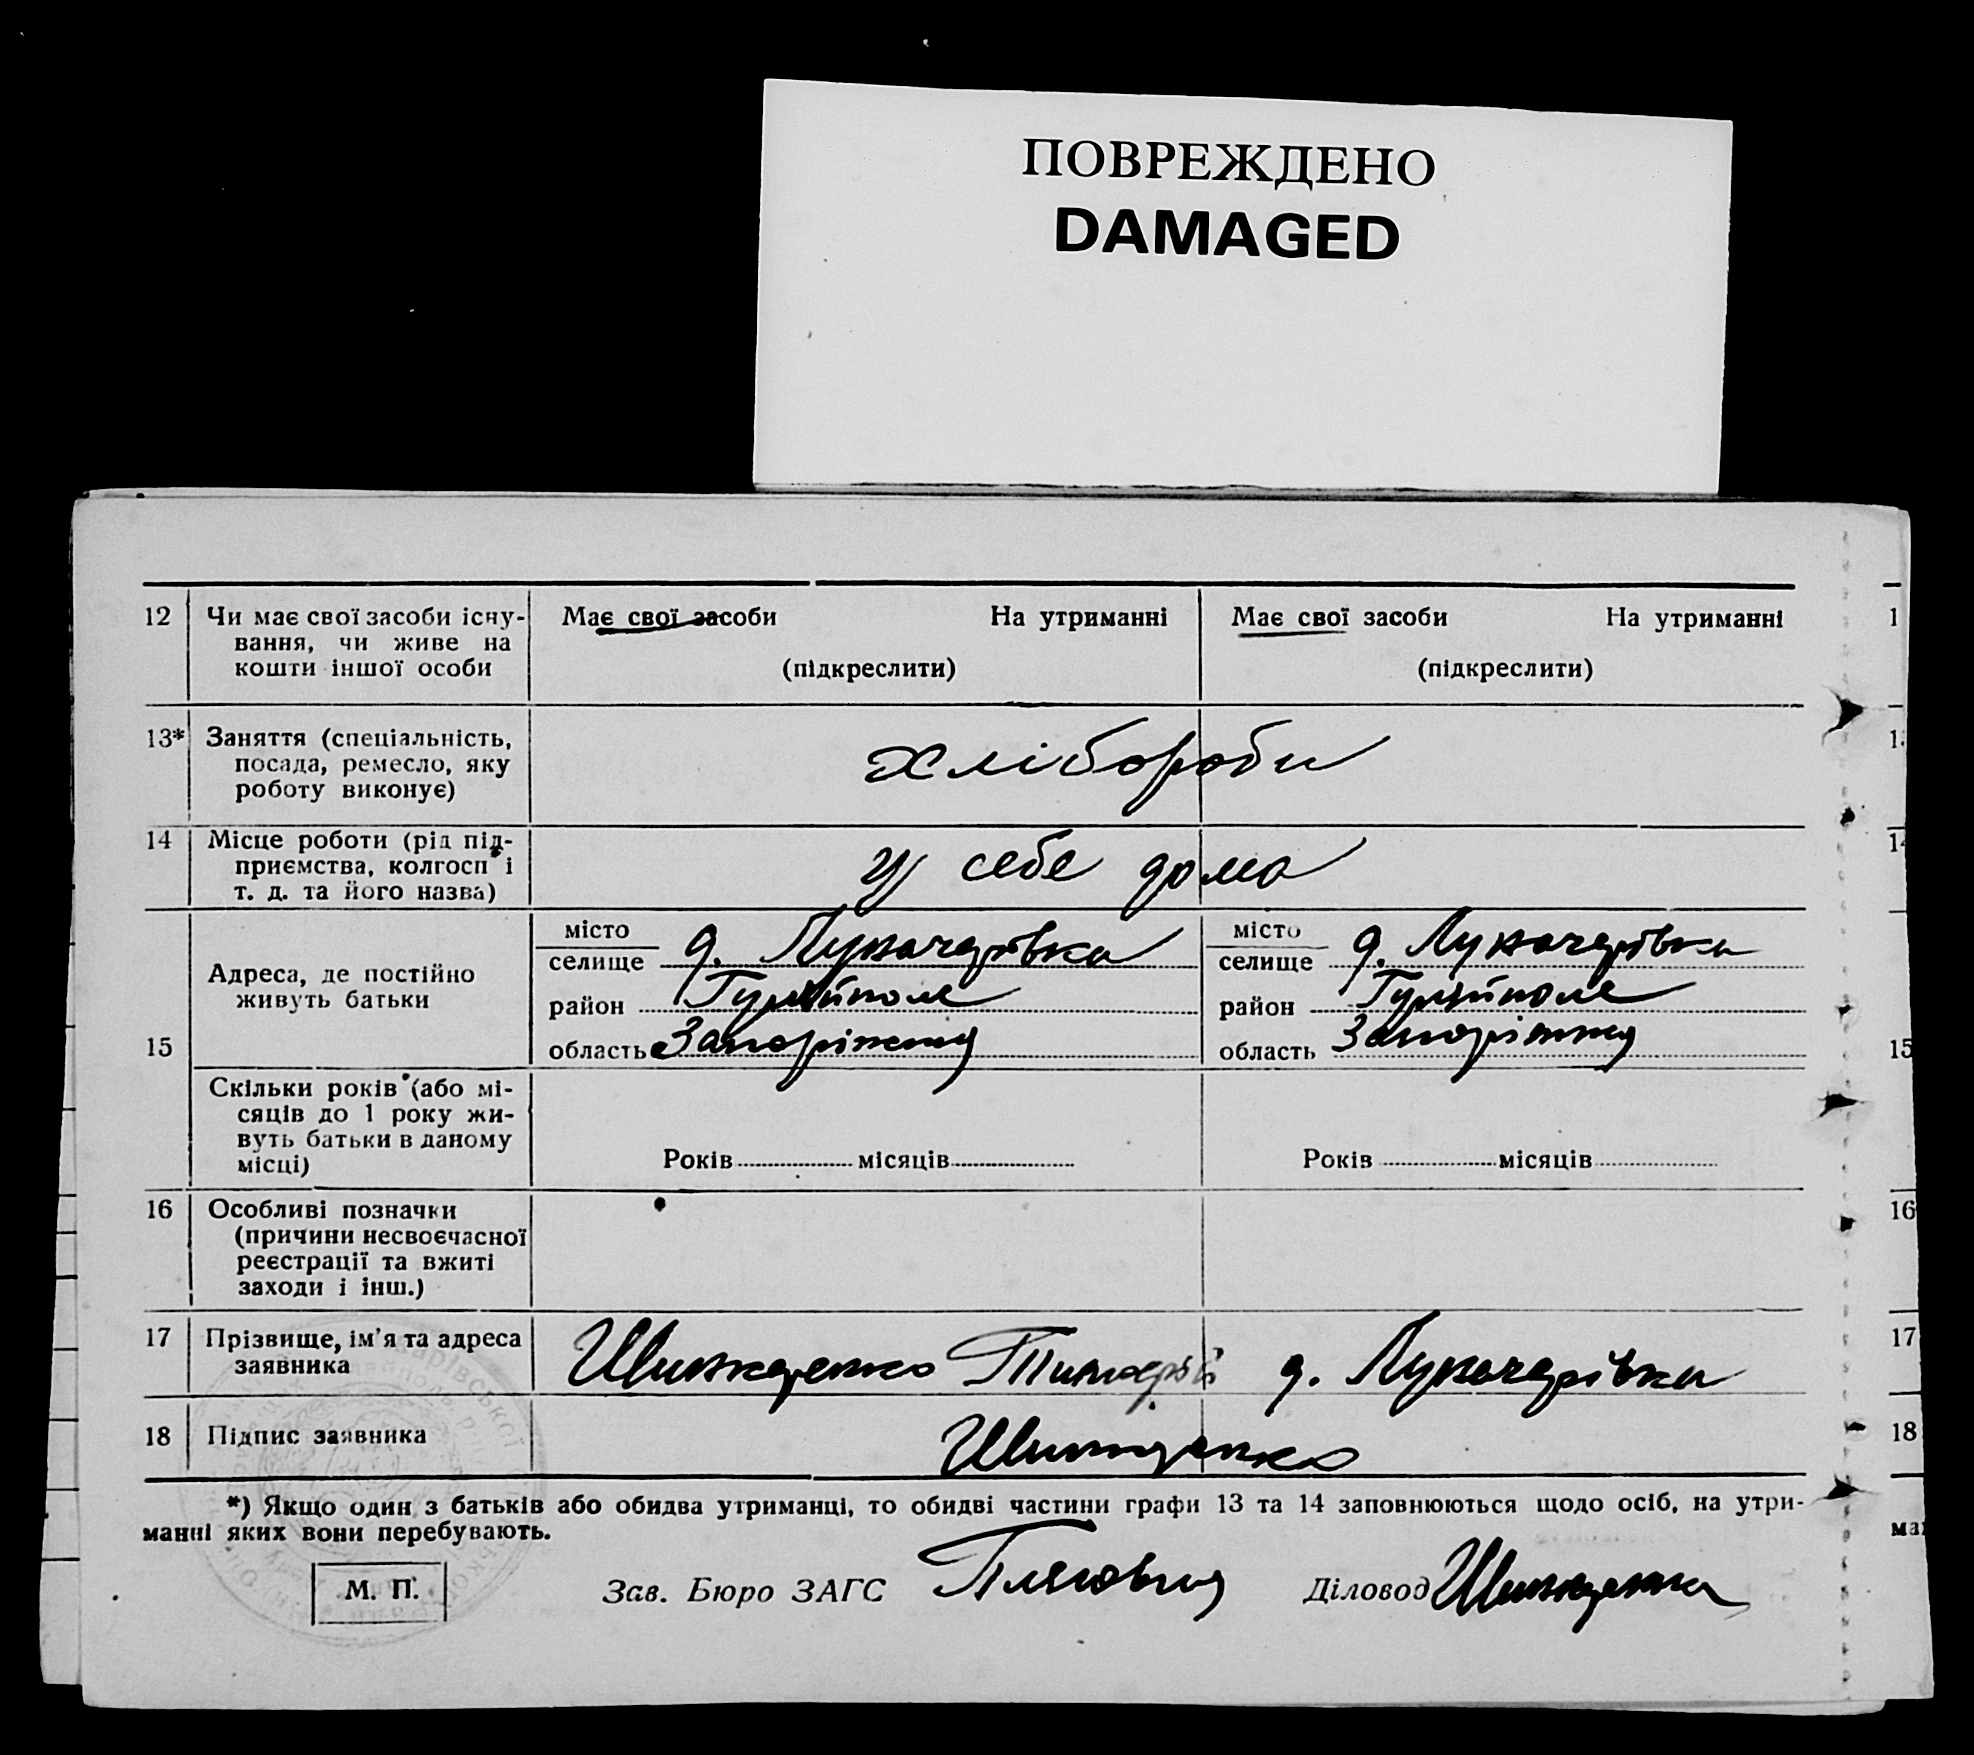 ПОВРЕЖДЕНО
DAMAGED
12 Чи має свої засоби існу-
вання, чи живе на
кошти іншої особи
Має свої засоби На утриманні
(підкреслити)
Має свої засоби На утриманні
(підкреслити)
1
13* Заняття (спеціальність,
посада, ремесло, яку
роботу виконує)
хлібороби
13
14 Місце роботи (рід під-
приємства, колгосп і
т. д. та його назва)
у себе дома
14
15
Адреса, де постійно
живуть батьки
місто
селище д. Луначарівка
район Гуляйполе
область Запоріжжя
місто
селище д. Луначарівка
район Гуляйполе
область Запоріжжя
15
Скільки років (або мі-
сяців до 1 року жи-
вуть батьки в даному
місці)
Років місяців
Років місяців
16 Особливі позначки
(причини несвоєчасної
реєстрації та вжиті
заходи і інш.)
16
17 Прізвище, ім'я та адреса
заявника
Шинкаренко Тимофій д. Луначарівка
17
18 Підпис заявника
18
*) Якщо один з батьків або обидва утриманці, то обидві частини графи 13 та 14 заповнюються щодо осіб, на утри-
манні яких вони перебувають.
ма
М. П.
Зав. Бюро ЗАГС
Діловод